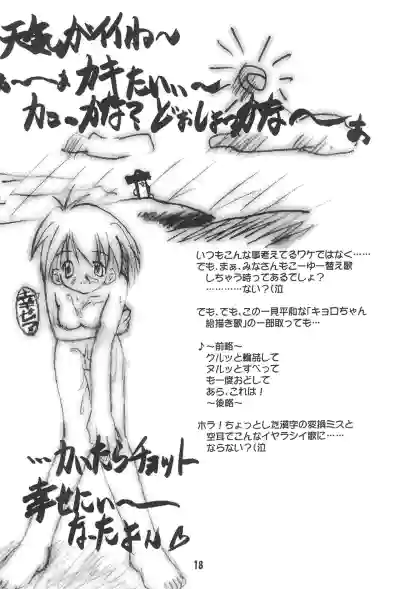 天気がイイね〜
ぁ〜〜ぁ カキたいぃ〜
カユーかな？ どぉしよっかな〜〜ぁ
いつもこんな事考えてるワケではなく……
でも、まぁ、みなさんもこーゆー替え歌
しちゃう時ってあるでしょ？
…………ない？(泣
でも、でも、この一見平和な「キョロちゃん
絵描き歌」の一部取っても…
♪〜前略〜
クルッと輪詰して
ヌルッとすべって
も一度おとして
あら、これは！
〜後略〜
ホラ！ちょっとした漢字の変換ミスと
空耳でこんなイヤラシイ歌に……
ならない？(泣
…かいたらチョット
幸せにぃ〜〜
なったょん♡
18